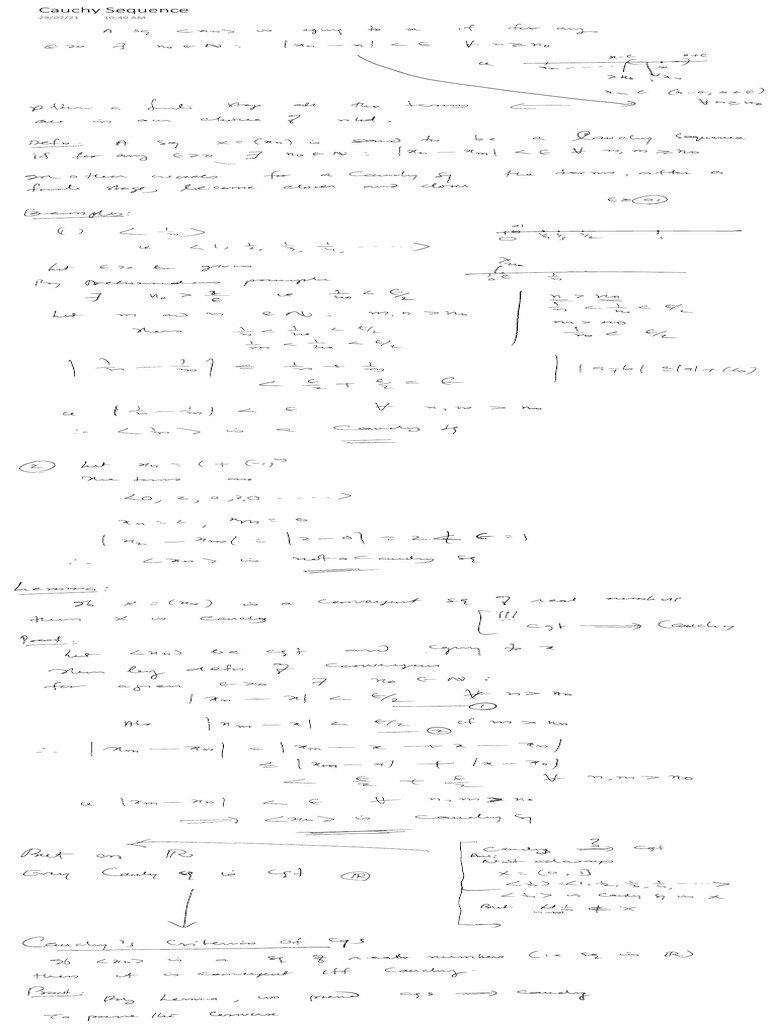 Cauchy Sequence
29/07/21 10:40 AM
A sq <xn> is cging to x if for any
ε>0 ∃ n0 ∈ N : |xn − x| < ε ∀ n ≥ n0
x−ε x+ε
x
(x−ε, x+ε)
∀ n ≥ n0
After a finite stage all the terms
are in our choice of nbd.
Defn: A sq x = (xn) is said to be a Cauchy Sequence
if for any ε>0, ∃ n0 ∈ N : |xn − xm| < ε ∀ n, m ≥ n0
In other words for a Cauchy sq the terms, after a
finite stage, become closer and closer
Examples:
(1) < 1/n >
ie <1, 1/2, 1/3, 1/4, ....>
Let ε>0 be given
By Archimedean principle
∃ n0 > 2/ε ie 1/n0 < ε/2
Let m and n ∈ N : m, n > n0
then 1/n < 1/n0 < ε/2
1/m < 1/n0 < ε/2
n > n0
1/n < 1/n0 < ε/2
m > n0
1/m < ε/2
|1/n − 1/m| ≤ 1/n + 1/m
|a+b| ≤ |a| + |b|
< ε/2 + ε/2 = ε
ie |1/n − 1/m| < ε ∀ n, m > n0
∴ <1/n> is a Cauchy sq
2 Let xn = 1 + (−1)^n
The terms are
<0, 2, 0, 2, 0 .....>
xn = 2, xm = 0
|xn − xm| = |2 − 0| = 2 ≮ ε = 1
∴ <xn> is not a Cauchy sq
Lemma:
If x = (xn) is a convergent sq of real numbers
then x is Cauchy
cgt ⟶ Cauchy
Proof:
Let <xn> be cgt and cging to x
Then by defn of convergence
for a given ε>0 ∃ n0 ∈ N :
|xn − x| < ε/2 ∀ n > n0 1
Also |xm − x| < ε/2 if m > n0 2
∴ |xm − xn| = |xm − x + x − xn|
≤ |xm − x| + |x − xn|
< ε/2 + ε/2 ∀ n, m > n0
ie |xm − xn| < ε ∀ n, m > n0
⟹ <xn> is Cauchy sq
Cauchy ⟹? cgt
Ans: Not always
x = (0, 1]
<1/n> = <1, 1/2, 1/3, 1/4, ...>
<1/n> is Cauchy sq in x
But Lt 1/n ∉ x
But on ℝ
Every Cauchy sq is cgt ℝ
Cauchy's Criterion of cgs
If <xn> is a sq of reals numbers (ie sq in ℝ)
then it is convergent iff Cauchy.
Proof: By Lemma, we proved cgs ⟶ Cauchy
To prove the converse